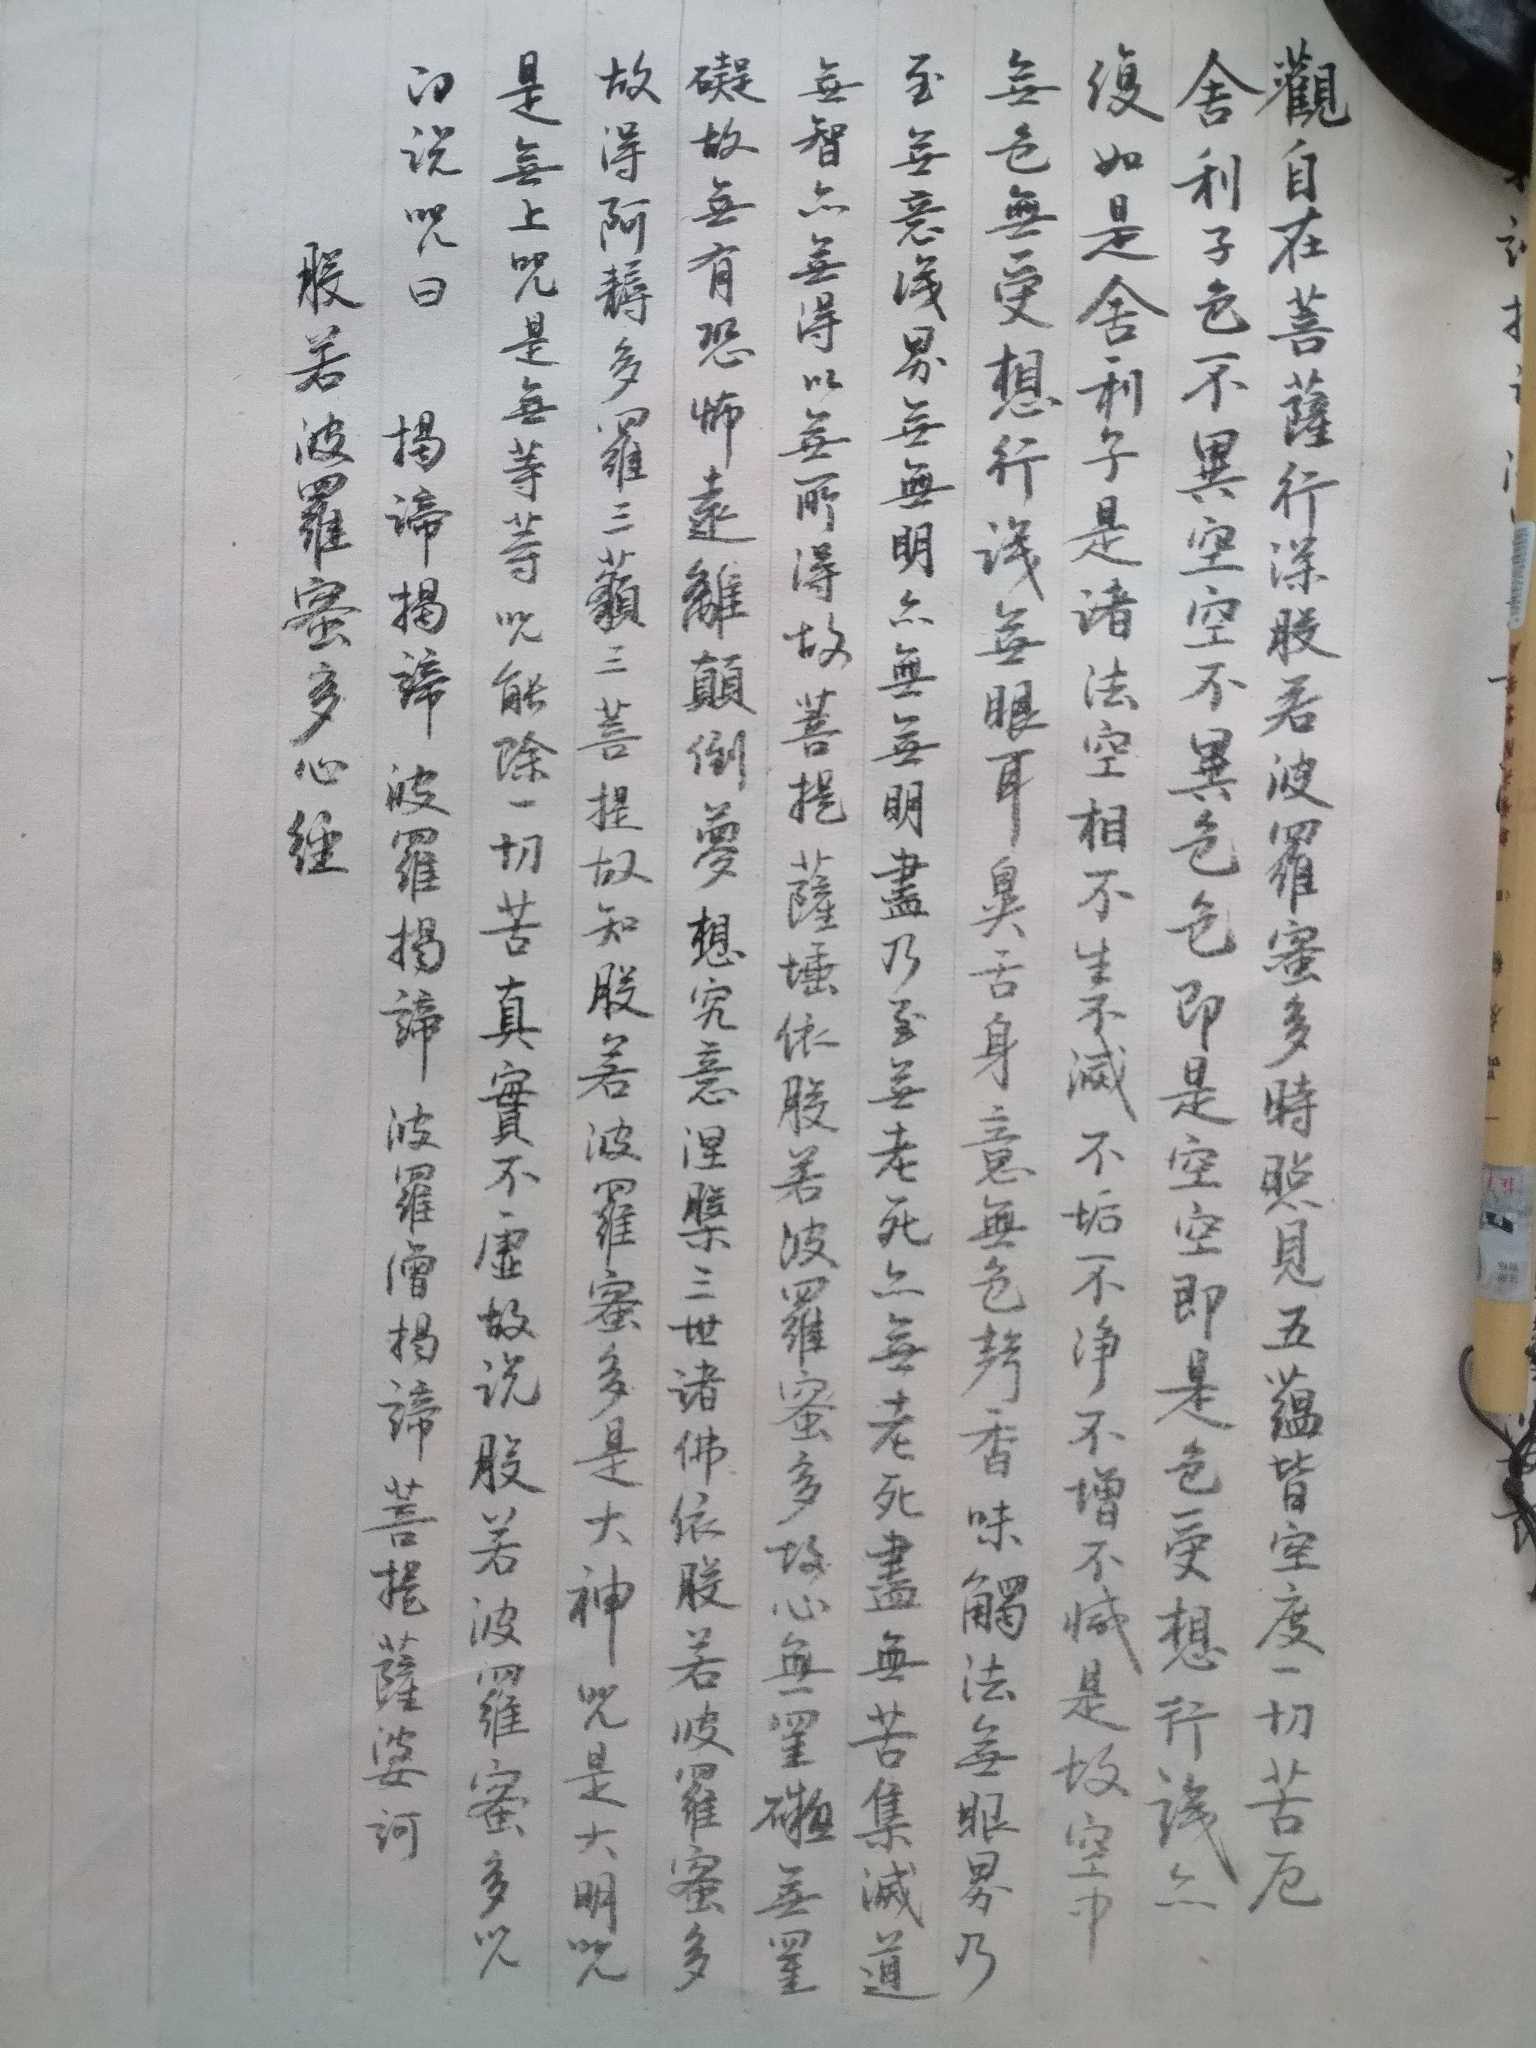 觀自在菩薩行深般若波羅蜜多時照見五蘊皆空度一切苦厄
舍利子色不異空空不異色色即是空空即是色受想行識亦
復如是舍利子是諸法空相不生不滅不垢不净不增不減是故空中
無色無受想行識無眼耳鼻舌身意無色聲香味觸法無眼界乃
至無意識界無無明亦無無明盡乃至無老死亦無老死盡無苦集滅道
無智亦無得以無所得故菩提薩埵依般若波羅蜜多故心無罣礙無罣
礙故無有恐怖遠離顛倒夢想究意涅槃三世諸佛依般若波羅蜜多
故得阿耨多羅三藐三菩提故知般若波羅蜜多是大神咒是大明咒
是無上咒是無等等咒能除一切苦真實不虛故説般若波羅蜜多咒
即説咒曰 揭諦揭諦 波羅揭諦 波羅僧揭諦 菩提薩婆訶
般若波羅蜜多心經